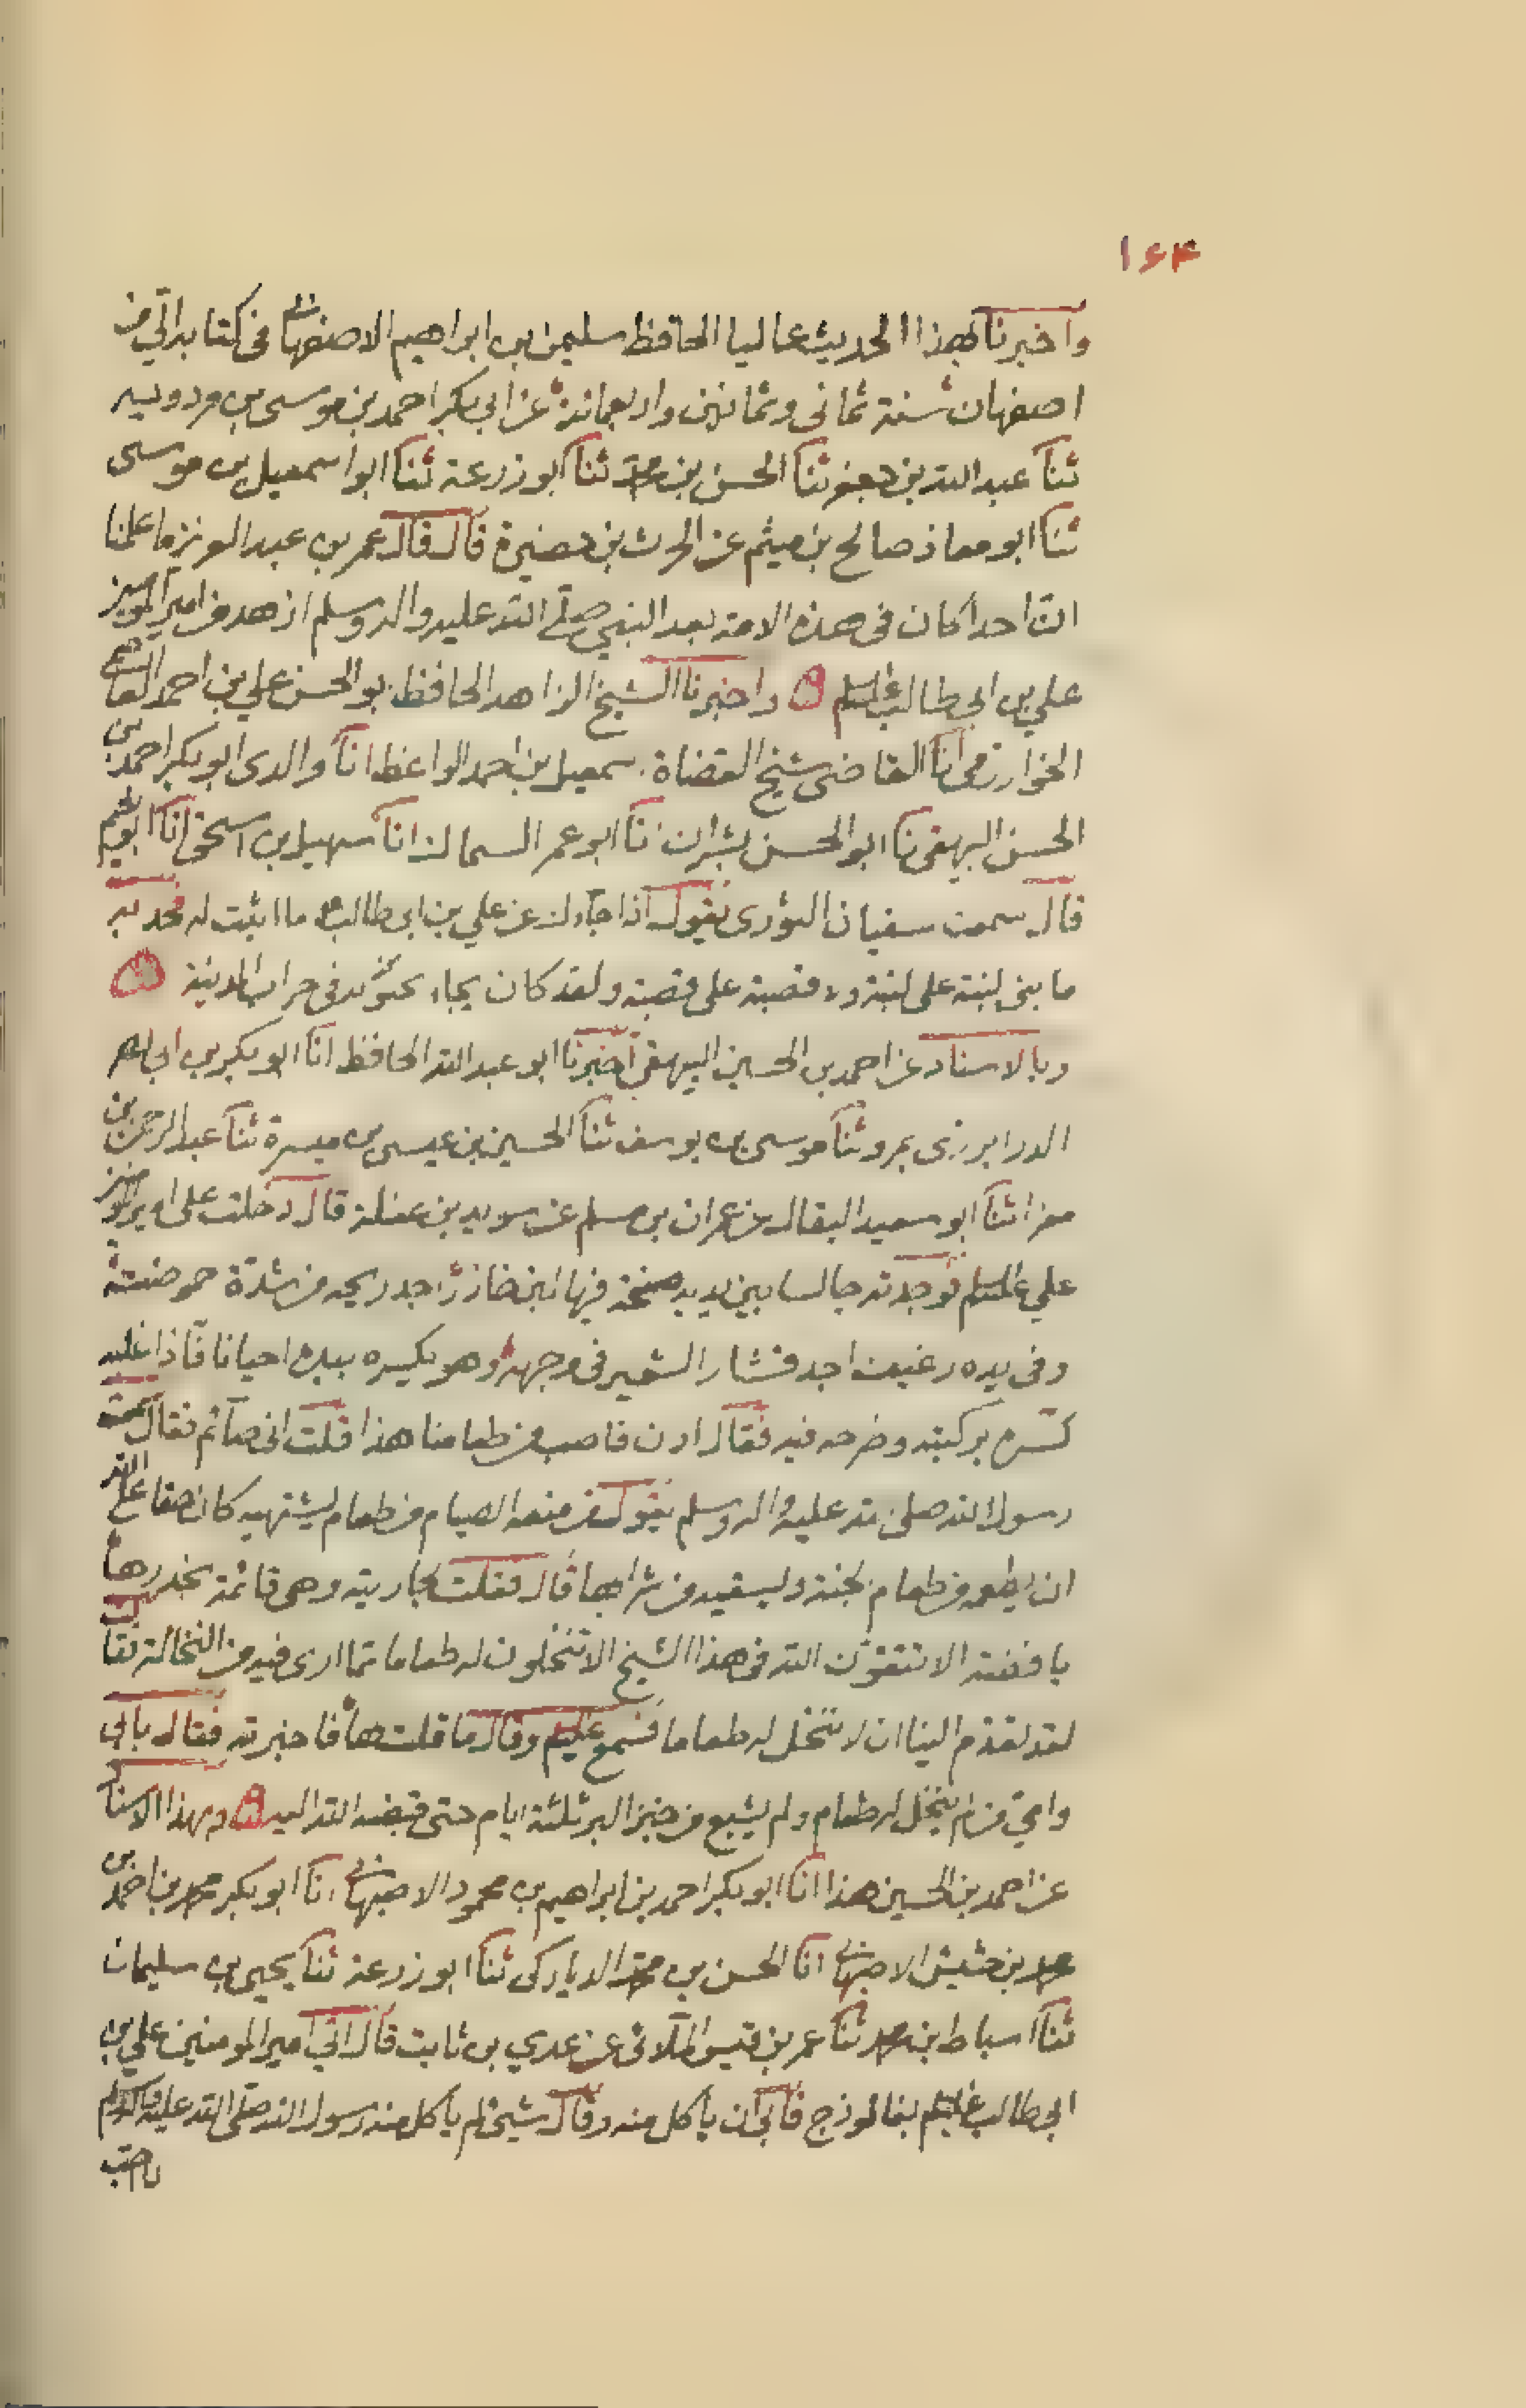 ١٦۴
واخبرنا بهذا الحديث عاليا الحافظ سليمن بن ابراهيم الاصفهاني في كتابه الي من
اصفهان سنة ثماني وثمانين واربعمائة عن ابي بكر احمد بن موسى بن مردويه
ثنا عبد الله بن جعفر ثنا الحسن بن محمد ثنا ابو زرعة ثنا ابو اسمعيل بن موسى
ثنا ابو معاذ صالح بن ميثم عن الحرث بن حصيرة قال قال عمر بن عبد العزيز ما علمنا
ان احدا كان في هذه الامة بعد النبي صلى الله عليه واله وسلم ازهد من امير المومنين
علي بن ابي طالب عليه السلم واخبرنا الشيخ الزاهد الحافظ ابو الحسن علي بن احمد العاصمي
الخوارزمي انا القاضي شيخ القضاة اسمعيل بن احمد الواعظ انا والدي ابو بكر احمد بن
الحسين البيهقي نا ابو الحسن بشران انا ابو عمر السماك انا سهيل بن اسحق انا ابو نعيم
قال سمعت سفيان الثوري يقول اذا جاءك عن علي بن ابي طالب ما اثبت له فخذ به
ما بنى لبنة على لبنة ولا قصبة على قصبة ولقد كان يجاء بحبوبه في جراب المدينة
وبالاسناد عن احمد بن الحسين البيهقي اخبرنا ابو عبد الله الحافظ انا ابو بكر بن ابي
الدرابرزي بمرو ثنا موسى بن يوسف ثنا الحسين بن عيسى بن ميسرة ثنا عبد الرحمن بن
مغرا ثنا ابو سعيد البقال عن عمران بن مسلم عن سويد بن غفلة قال دخلت على امير المومنين
علي عليه السلم فوجدته جالسا بين يديه صحفة فيها لبن حازر اجد ريحه من شدة حموضته
وفي يده رغيف اجد قشار الشعير في وجهه وهو يكسره بيده احيانا فاذا غلبه
كسره بركبته وطرحه فيه فقال ادن فاصب من طعامنا هذا قلت اني صائم فقال سمعت
رسول الله صلى الله عليه واله وسلم يقول من منعه الصيام من طعام يشتهيه كان حقا على الله
ان يطعمه من طعام الجنة ويسقيه من شرابها قال فقلت لجاريته وهي قائمة
يا فضة الا تتقون الله في هذا الشيخ الا تنخلون له طعاما مما ارى فيه من النخالة فقالت
لقد تقدم الينا ان لا ننخل له طعاما وقال ما قلت لها فاخبرته فقال بابي
وامي من لم ينخل له طعام ولم يشبع من خبز البر ثلثة ايام حتى قبضه الله اليه وبهذا الاسناد
عن احمد بن الحسين هذا انا ابو بكر احمد بن ابراهيم بن محمود الاصبهاني انا ابو بكر محمد بن احمد بن
محمد بن حشيش الاصبهاني انا الحسن بن محمد الدياركي ثنا ابو زرعة ثنا يحيى بن سليمان
ثنا اسباط بن محمد ثنا عمر بن قيس الملائي عن عدي بن ثابت قال اتي امير المومنين علي بن
ابي طالب عليه السلم بفالوذج فابى ان ياكل منه وقال شيئ لم ياكل منه رسول الله صلى الله عليه واله وسلم
لا احب